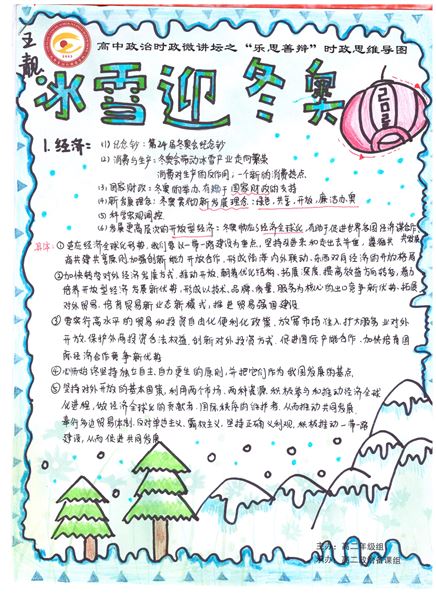 王靓
高中政治时政微讲坛之“乐思善辩”时政思维导图
冰雪迎冬奥
2022
1.经济:
(1) 纪念钞:第24届冬奥会纪念钞
(2) 消费与生产:冬奥会带动冰雪产业走向繁荣
消费对生产的反作用,一个新的消费热点
(3) 国家财政:冬奥的举办,有赖于国家财政的支持
(4) 新发展理念:冬奥贯彻新发展理念:绿色,共享,开放,廉洁办奥
(5) 科学宏观调控
(6) 发展更高层次的开放型经济:冬奥顺应经济全球化,有助于促进世界各国经济课合作,共发展
具体:①适应经济全球化形势,我们要以一带一路建设为重点,坚持引进来和走出去并重,遵循共
商共建共享原则加强创新能力开放合作,形成陆海内外联动,东西双向经济的开放格局
②加快转变对外经济发展方式,推动开放,朝着优化结构、拓展深度、提高效益方向转变,着力
培养开放型经济发展新优势,形成以技术,品牌,质量,服务为核心的出口竞争新优势,拓展
对外贸易,培育贸易新业态新模式,推进贸易强国建设
③要实行高水平的贸易和投资自由化便利化政策,放宽市场准入,扩大服务业对外
开放,保护外商投资合法权益,创新对外投资方式,促进国际产能合作,加快培育国
际经济合作竞争新优势
④必须始终坚持独立自主,自力更生的原则,并把它们作为我国发展的基点
⑤坚持对外开放的基本国策,利用两个市场,两种资源,积极参与和推动经济全球
化进程,做经济全球化的贡献者,国际秩序的维护者,从而推动共同发展
奉行多边贸易体制,反对单边主义,霸权主义,坚持正确义利观,积极推动一带一路
建设,从而促进共同发展
主办:高二年级组
承办:高二政治备课组